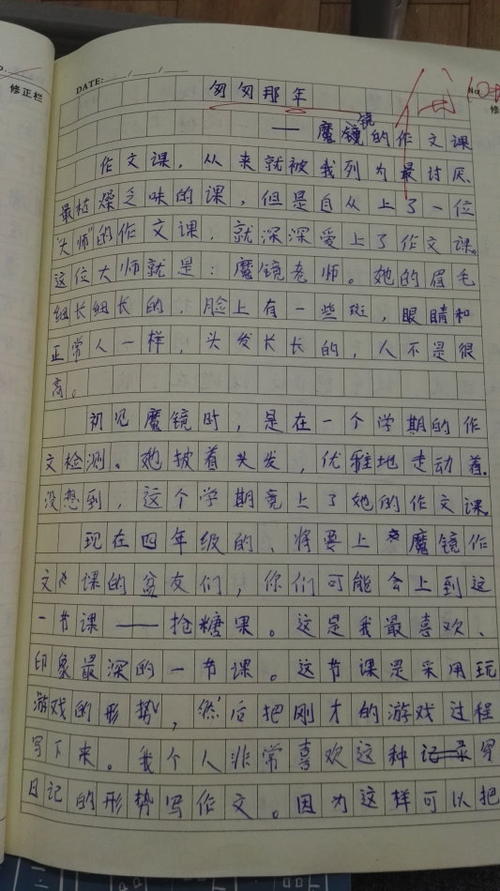 修正栏
DATE: / /
No
匆匆那年
——魔镜的作文课
镜
作文课，从来就被我列为最讨厌
最枯燥乏味的课，但是自从上了一位
“大师”的作文课，就深深爱上了作文课。
这位大师就是：魔镜老师。她的眉毛
细长细长的，脸上有一些斑，眼睛和
正常人一样，头发长长的，人不是很
高。
初见魔镜时，是在一个学期的作
文检测。她披着头发，优雅地走动着。
没想到，这个学期竟上了她的作文课。
现在四年级的、将要上魔镜作
文课的盆友们，你们可能会上到这
一节课——抢糖果。这是我最喜欢、
印象最深的一节课。这节课是采用玩
游戏的形势，然后把刚才的游戏过程
写下来。我个人非常喜欢这种写
日记的形势写作文。因为这样可以把